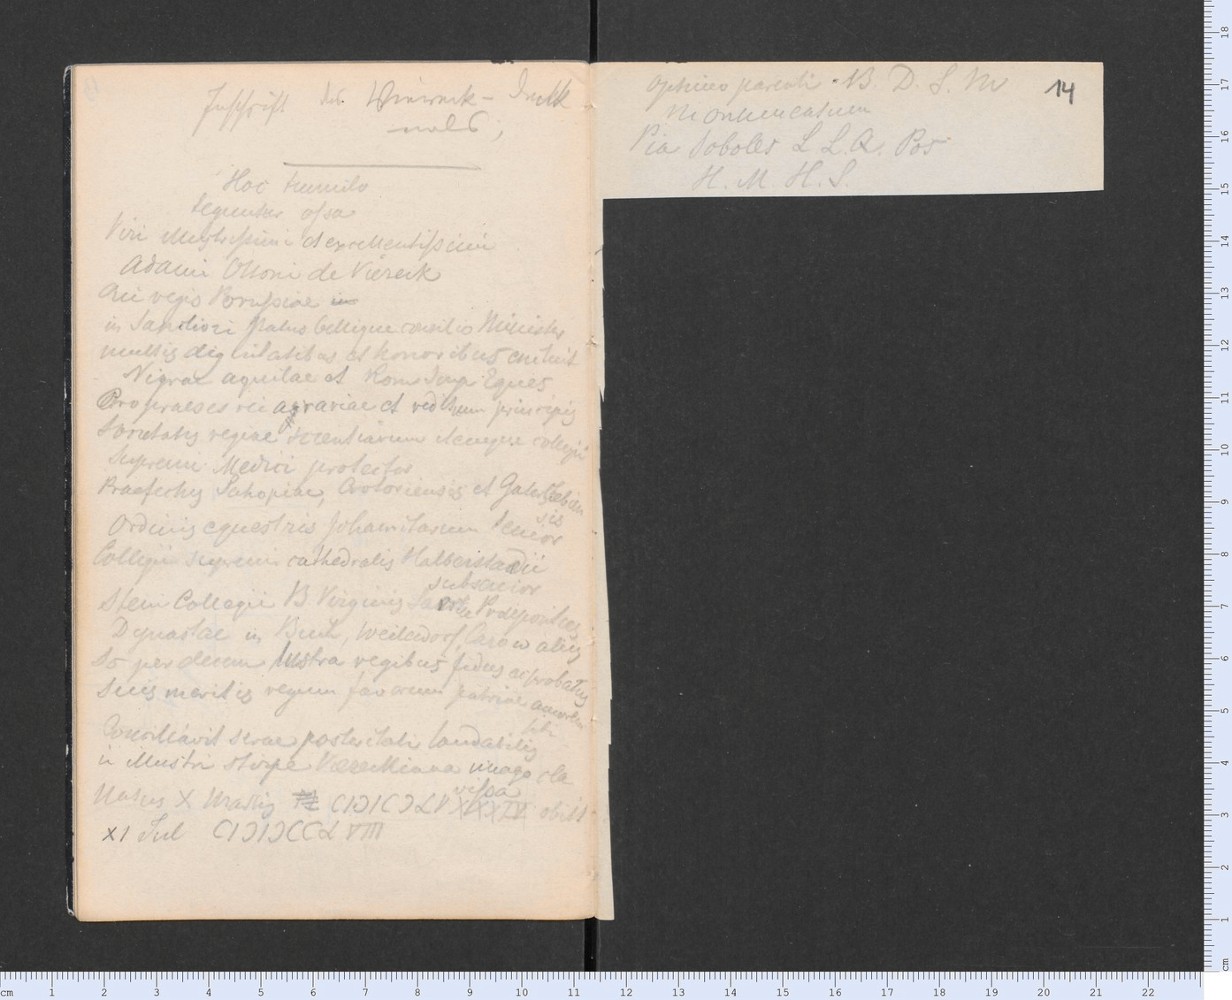 Inschrift des Viereck-Denk
mals;
Hoc tumulo
teguntur ossa
Viri illustrissimi et excellentissimi
Adami Ottoni de Viereck
Qui regis Borussiae in
in Sanctiori status bellique consilio Minister
multis dignitatibus et honoribus enituit
Nigrae aquilae et Rom Imp Eques
Pro praeses rei agrariae et redituum principis
Societatis regiae scientiarum itemque collegii
supremi Medici protector
Praefectus Sahopiae, Crotoriensis et Gaterslebien
sis
Ordinis equestris Johannitarum Senior
Collegii supremi cathedralis Halberstadii
subsenior
Item Collegii B Virginis Praepositus
Dynastae in Buch, Weitendorf, Carow aliis
So per decem lustra regibus fidus ac probatus
suis meritis regum favorem patriae amorem
sibi
Conciliavit serae posteritatis laudabilis
in illustri stirpe Viereckiana imago cla
vissa
Natus X Martis CIƆIƆCLXXXIV obiit
XI Jul CIƆIƆCCLVIII
14
Optimo parenti B. D. S. M
Monumentum
Pia Soboles L L. Q. Pos
H. M. H. S.